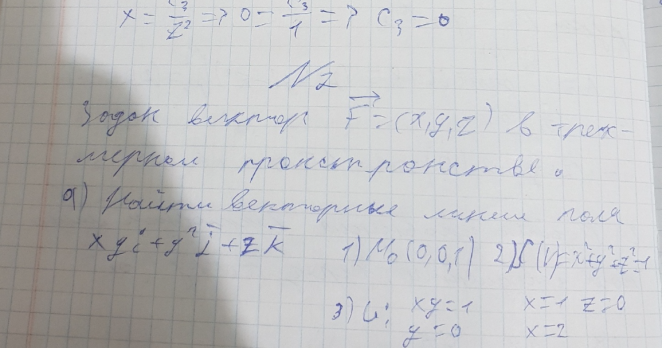 x = C₃/z² => 0 = C₃/1 => C₃ = 0
N2
Задан вектор F = (x, y, z) в трех-
мерном пространстве.
а) Найти векторные линии поля
xyi + y²j + zk 1) M₀(0,0,1) 2) x²+y²+z²=1
3) L: xy=1 x=1 z=0
y=0 x=2